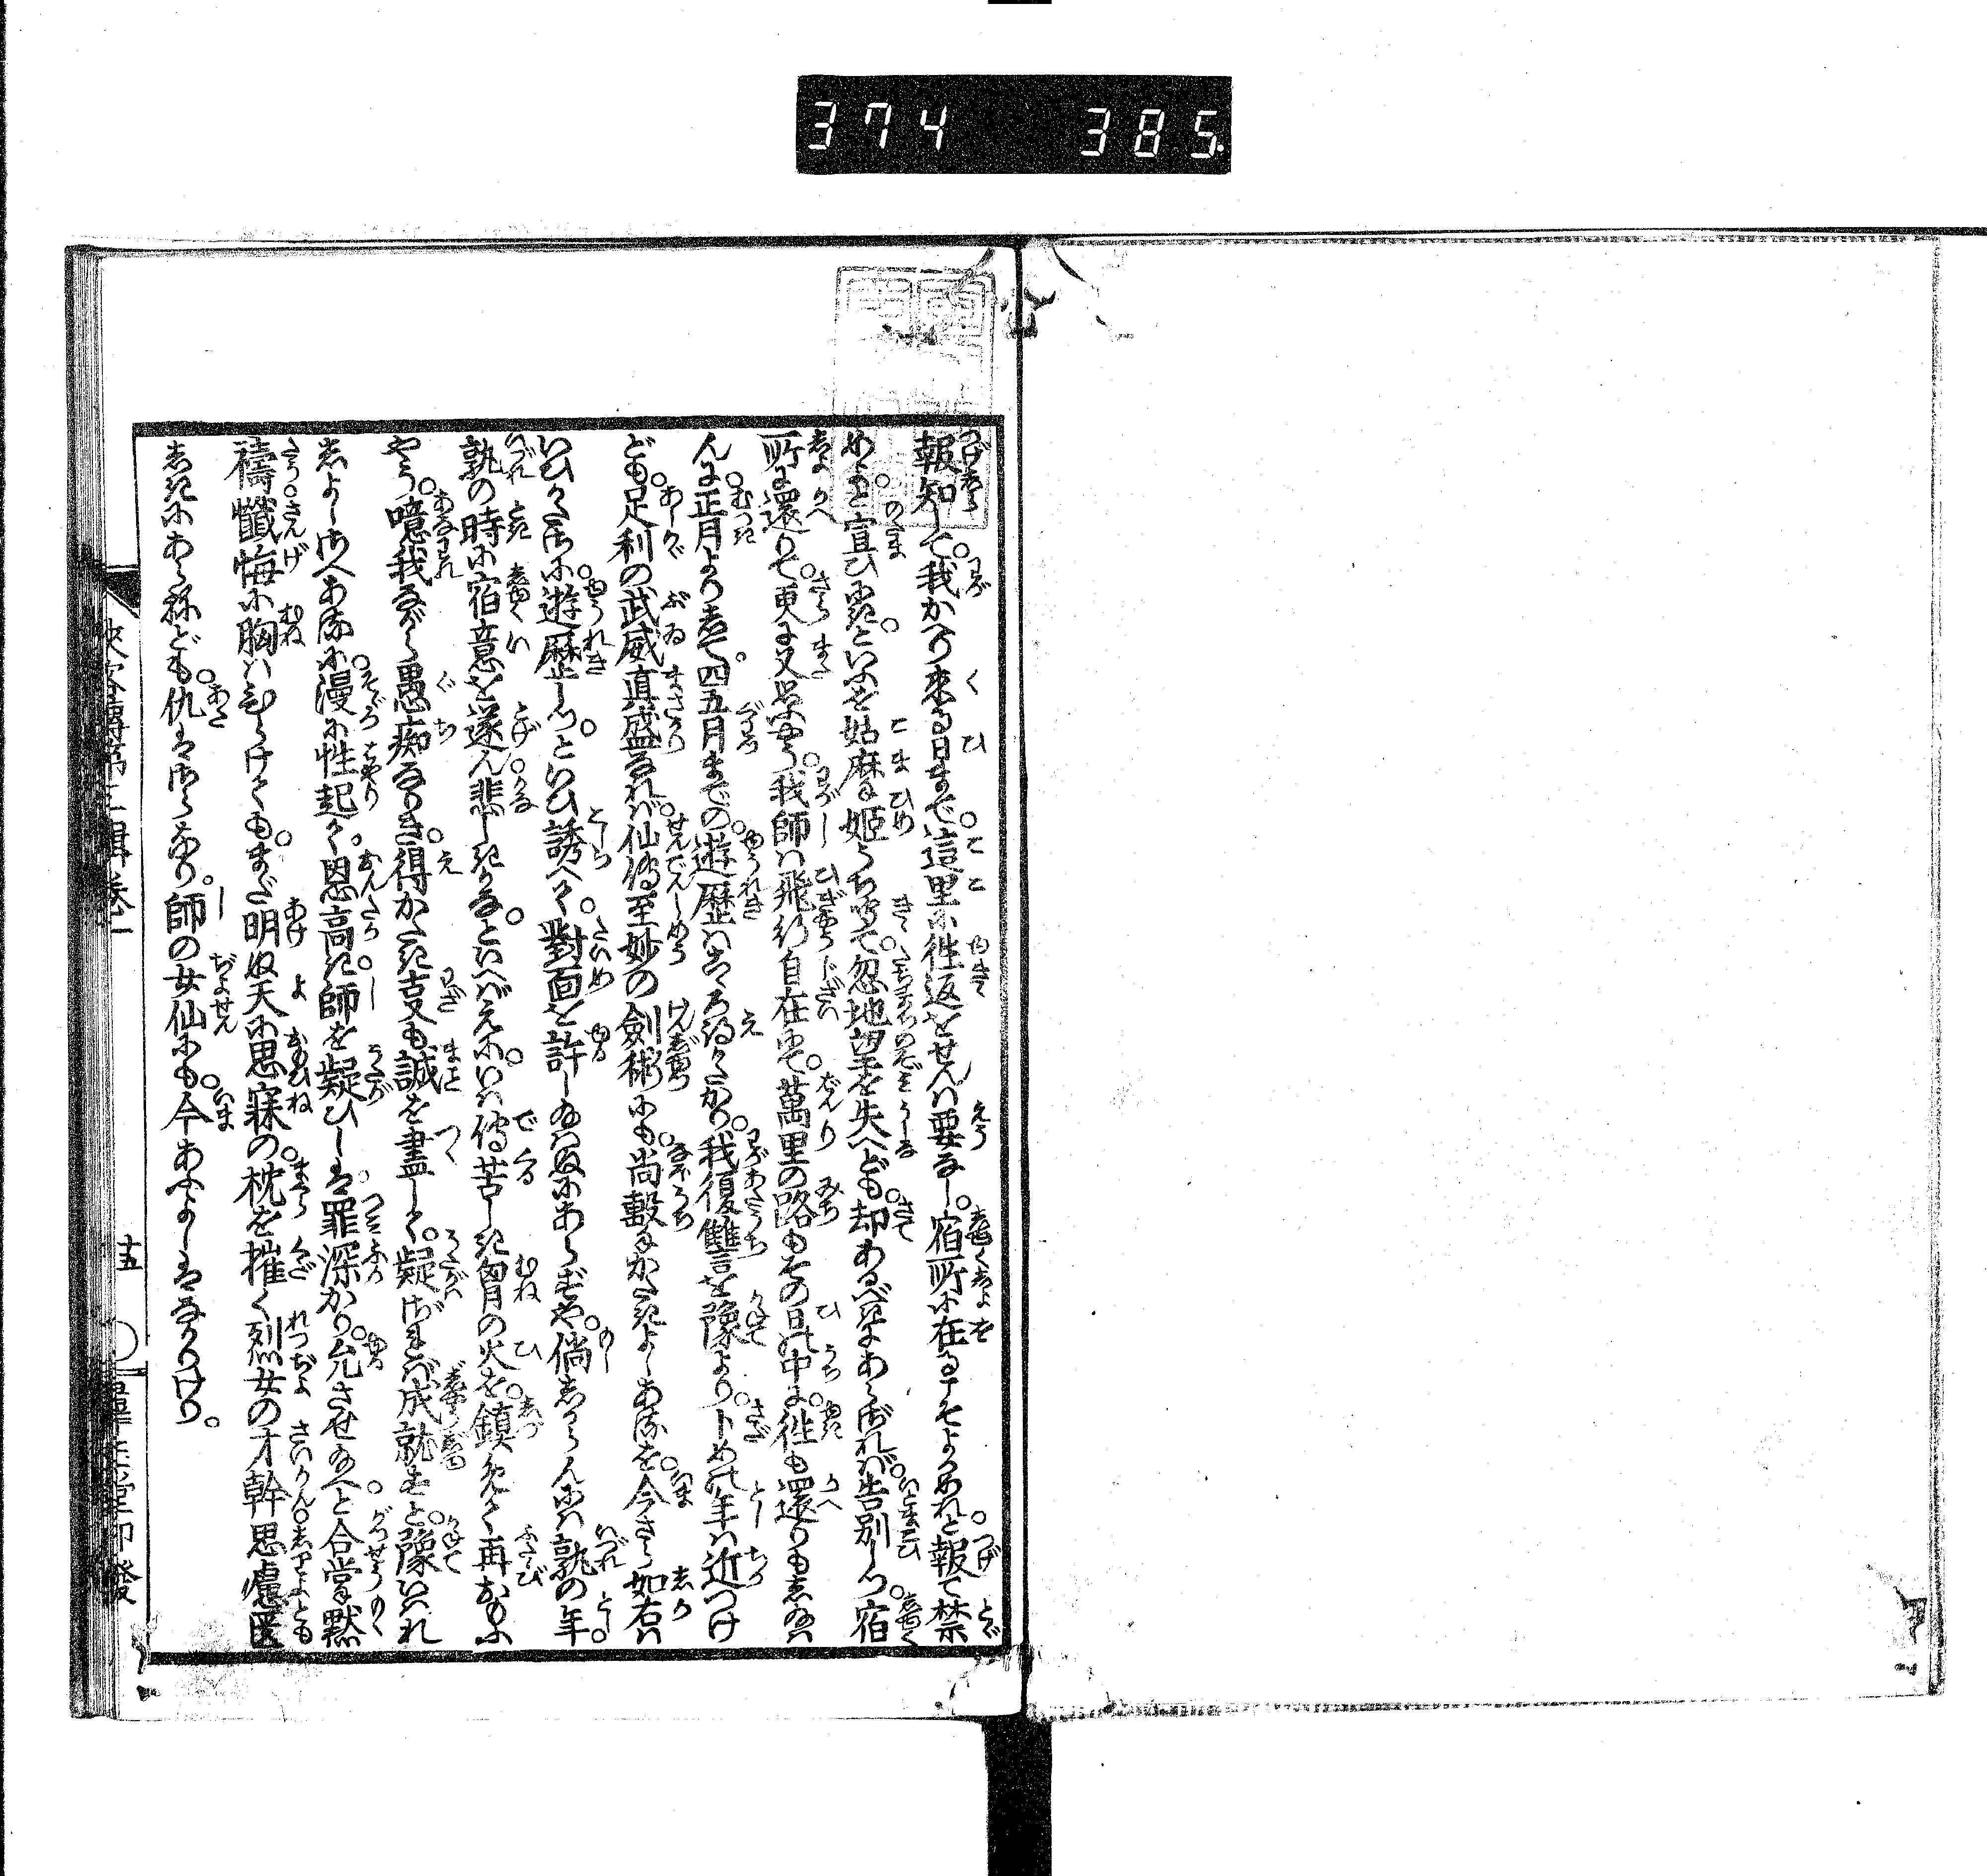 374 385
報知して。我かへり来る日まで。這里に徃返をせんは要なし。宿所に在るこそよかめれと報て禁
めよと宣ひにきといふを姑麻姫うち聞て。忽地望を失へども。却あるべきにあらざれば。告別しつ。宿
所に還りて。更に又思ふやう。我師は飛行自在にて。萬里の路もその日の中に。徃も還りもし給はん
に。正月よりして。四五月までの。遊歴はこゝろ得かたかり。我復讐を豫より。卜めの年は近つけ
ども。足利の武威真盛なれば。仙傳至妙の劍術にも。尚撃かたきよしあるを。今さら如右は
いひかたさに。遊歴しつ。といひ誘へて。對面を許し給はぬにあらずや。倘しからんには孰の年。
孰の時に宿意を遂ん。悲しきかな。といへばえに。いは傳苦しき胸の火を。鎮めて再おもふ
やう。噫我ながら愚痴なりき。得かたき㕝も誠を盡して。疑はざれば成就すと。豫いはれ
しよしさへあるに。漫に性起て。恩高き師を疑ひしは罪深かり。允させ給へと合掌黙
禱。懺悔に胸はひらけても。まだ明ぬ天に思寐の。枕を摧く烈女の才幹思慮匱
しきにあらねども。仇はさらなり。師の女仙にも。今あふよしはなかりけり。
俠客傳第三輯卷二
十五
群玉堂印發